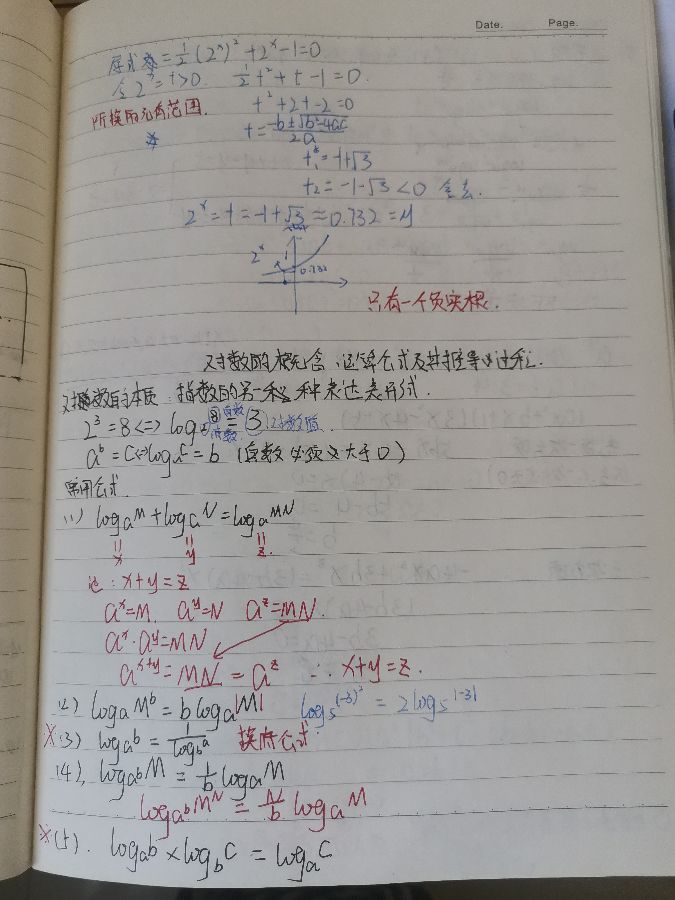 Date. Page.
原式 = ½(2ˣ)² + 2ˣ - 1 = 0
令 2ˣ = t > 0. ½t² + t - 1 = 0.
所换的元有范围. t² + 2t - 2 = 0
t = (-b ± √(b² - 4ac)) / 2a
t₁ = -1 + √3
t₂ = -1 - √3 < 0 舍去.
2ˣ = t = -1 + √3 ≈ 0.732 = y
2ˣ 1 0.732
只有一个负实根.
对数的概念, 运算公式及其推导过程.
对数的本质: 指数的另一种表达形式.
2³ = 8 <=> log₂8 = 3 真数 底数 对数
aᵇ = C <=> logₐC = b (真数必须大于0)
常用公式.
(1) logₐM + logₐN = logₐMN
x y z
: x + y = z
aˣ = M. aʸ = N aᶻ = MN.
aˣ · aʸ = MN
aˣ⁺ʸ = MN = aᶻ ∴ x + y = z.
(2) logₐMᵇ = b logₐ|M| log₅(-3)² = 2 log₅|-3|
※(3) logₐb = 1/log_b a 换底公式.
(4). log_{aᵇ} M = 1/b logₐM
log_{aᵇ} Mᴺ = N/b logₐM
※(5). logₐb × log_b C = logₐC